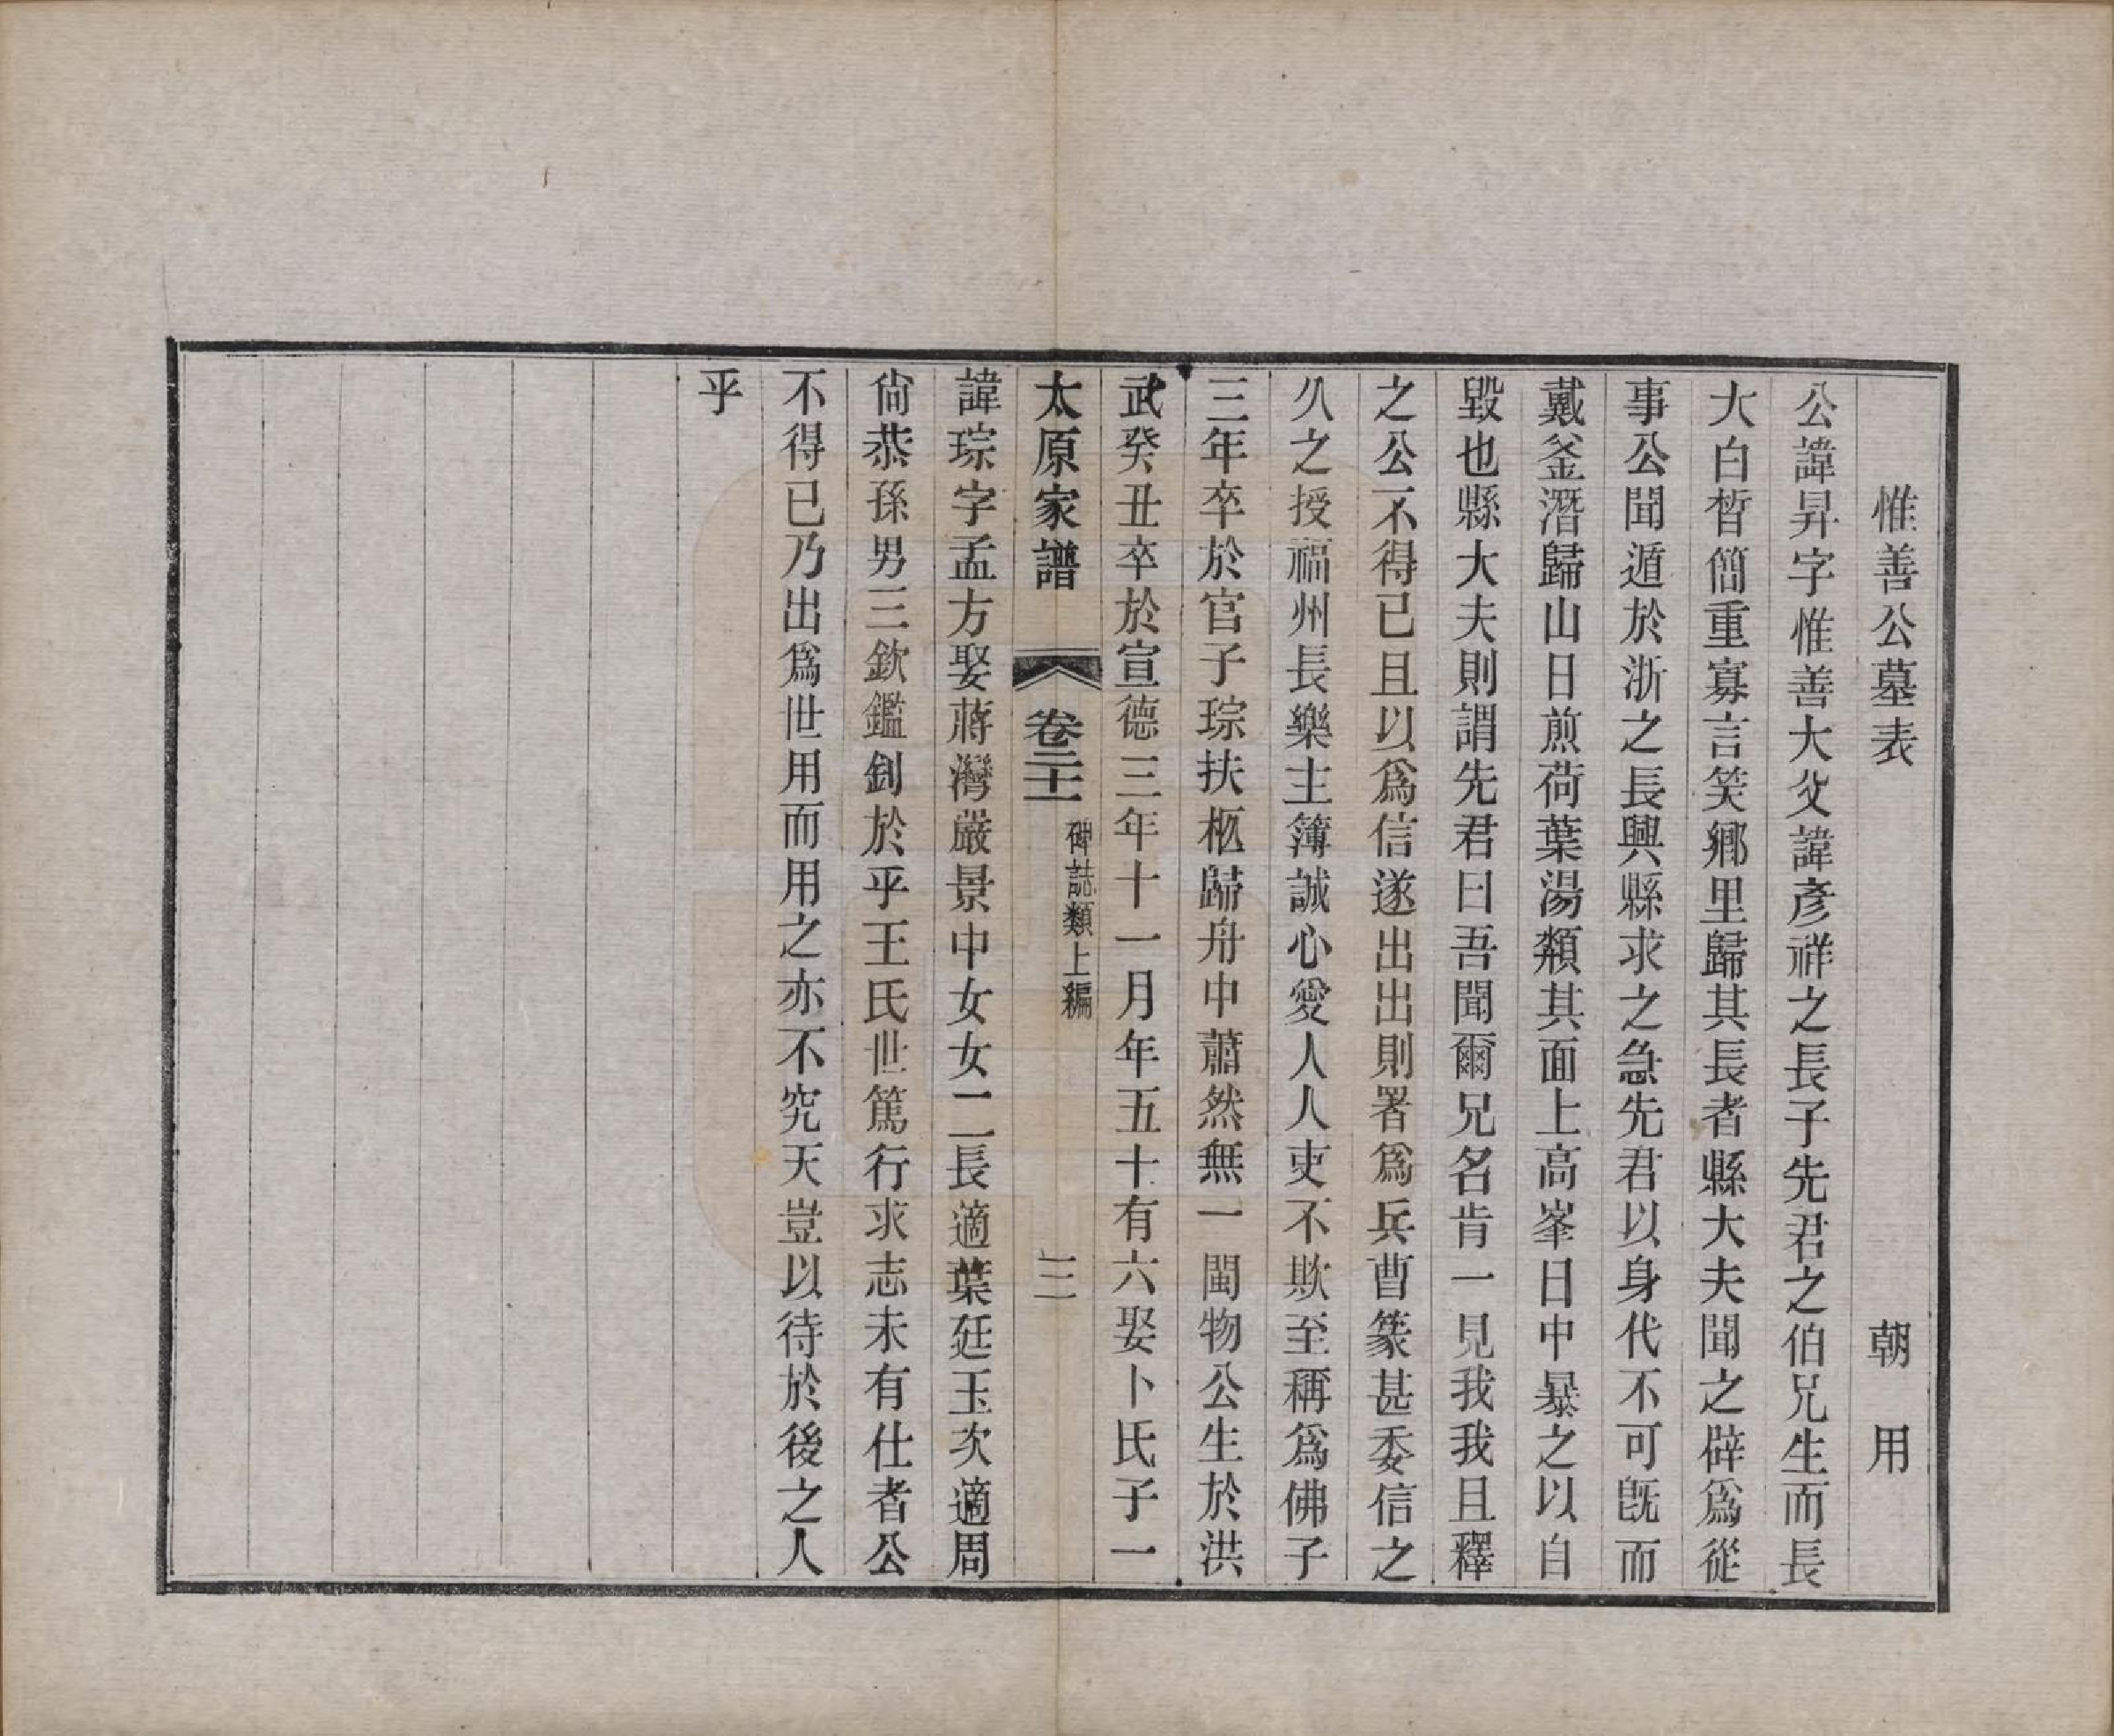 惟善公墓表　朝用
公諱昇字惟善大父諱彥祥之長子先君之伯兄生而長
大白皙簡重寡言笑鄉里歸其長者縣大夫聞之辟爲從
事公聞遁於浙之長興縣求之急先君以身代不可旣而
戴釜潛歸山日煎荷葉湯類其面上高峯日中暴之以自
毀也縣大夫則謂先君曰吾聞爾兄名肯一見我我且釋
之公不得已且以爲信遂出出則署爲兵曹篆甚委信之
久之授福州長樂主簿誠心愛人人吏不欺至稱爲佛子
三年卒於官子琮扶柩歸舟中蕭然無一閩物公生於洪
武癸丑卒於宣德三年十一月年五十有六娶卜氏子一
太原家譜　卷二十一　碑誌類上編　三
諱琮字孟方娶蔣灣嚴景中女女二長適葉廷玉次適周
尙恭孫男三欽鑑釗於乎王氏世篤行求志未有仕者公
不得已乃出爲世用而用之亦不究天豈以待於後之人
乎